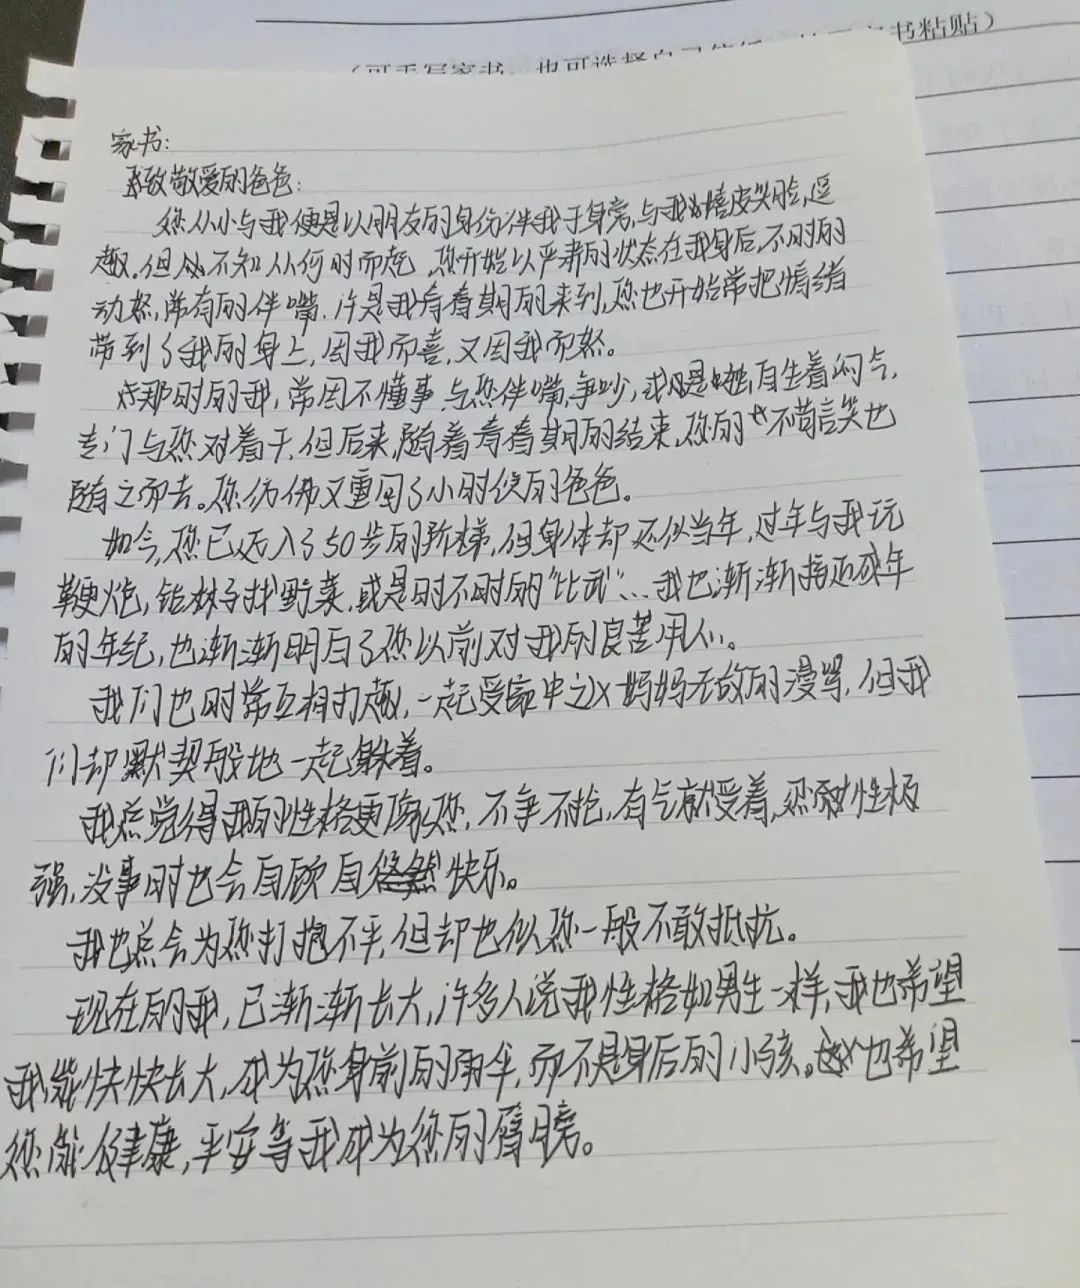 书粘贴）
（可手写家书，也可选择自己
家书：
致敬爱的爸爸：
您从小与我便是以朋友的身份伴我于身旁，与我嬉皮笑脸，逗
趣，但从不知从何时而起，您开始以严肃的状态在我身后，不时的
动怒，常有的伴嘴，许是我青春期的来到，您也开始常把情绪
带到了我的身上，因我而喜，又因我而怒。
那时的我，常因不懂事，与您伴嘴，争吵，或是独自生着闷气，
专门与您对着干，但后来，随着青春期的结束，您的“不苟言笑也
随之而去。您仿佛又重回了小时候的爸爸。
如今，您已迈入了50步的阶梯，但身体却还似当年，过年与我玩
鞭炮，钻林子找野菜，或是时不时的“比武”…我也渐渐接近成年
的年纪，也渐渐明白了您以前对我的良苦用心。
我们也时常互相打趣，一起受家中之妈妈无故的漫骂，但我
们却默契般地一起躲着。
我总觉得我的性格更像您，不争不抢，有气就受着，忍耐性极
强，没事时也会自顾自快乐。
我也总会为您打抱不平，但却也似您一般不敢抵抗。
现在的我，已渐渐长大，许多人说我性格如男生一样，我也希望
我能快快长大，成为您身前的雨伞，而不是身后的小孩。也希望
您能健康，平安等我成为您的臂膀。